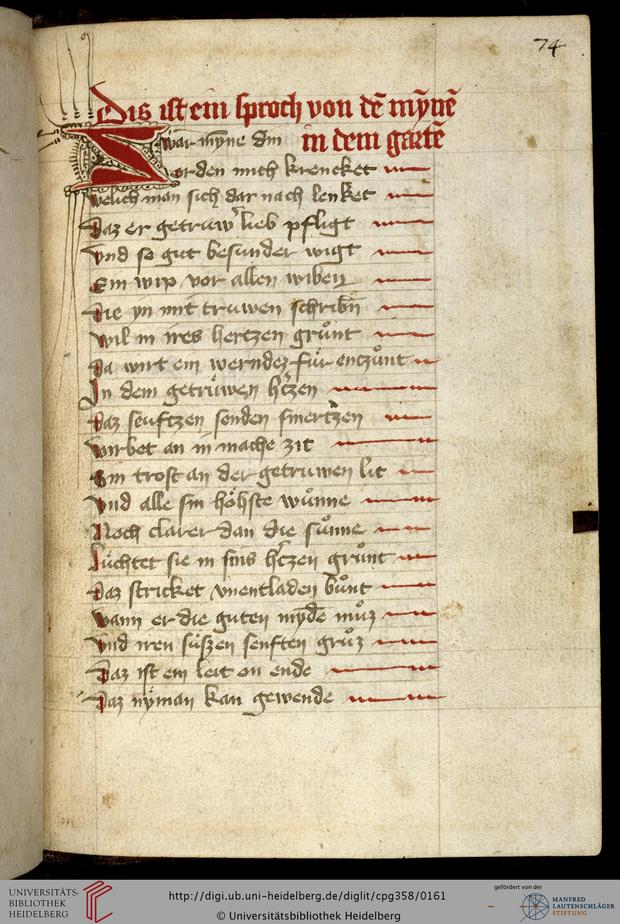 74
Dis ist ein sproch von dē mȳnē
in dem gartē
Zwar mȳne din
orden mich krencket
welich man sich dar nach lenket
Daz er getruwer lieb pfligt
vnd so gut besunder wigt
Ein wip vor allen wiben
Die yn mit truwen schriben
wil in ires hertzen grůnt
Da wirt ein werndez für entzůnt
In dem getrüwen hertzen
Daz seuftzen senden smertzen
wirbet an in mache zit
Sin trost an der getruwen lit
vnd alle sin höhste wůnne
Noch clarer dan die sůnne
lüchtet sie in sins hertzen grůnt
Daz stricket vnentladen bůnt
wann er die guten myde můz
vnd iren süszen senften grůz
Daz ist ein leit on ende
Daz nyman kan gewende
UNIVERSITÄTS-
BIBLIOTHEK
HEIDELBERG
http://digi.ub.uni-heidelberg.de/diglit/cpg358/0161
© Universitätsbibliothek Heidelberg
gefördert von der
MANFRED
LAUTENSCHLÄGER
STIFTUNG